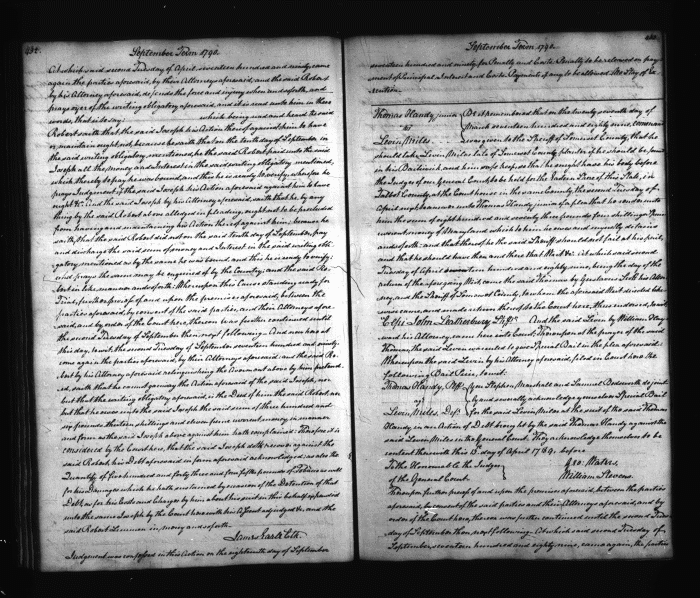 434.
September Term 1790.
At which said second Tuesday of April, seventeen hundred and ninety came
again the parties aforesaid, by their Attornies aforesaid, and the said Robert
by his Attorney aforesaid, defends the force and injury when and so forth, and
prays oyer of the writing obligatory aforesaid, and it is read unto him in these
words, that is to say: which being read and heard the said
Robert saith that the said Joseph his Action thereof against him to have
or maintain ought not, because he saith that on the tenth day of September in
the said writing obligatory, mentioned, he the said Robert paid unto the said
Joseph all the money and Interest in the said writing obligatory mentioned,
which thereby to pay he was bound, and this he is ready to verify; wherefore he
prays Judgment if the said Joseph his Action aforesaid against him to have
ought &c. And the said Joseph by his Attorney aforesaid, saith that he, by any
thing by the said Robert above alledged in pleading, ought not to be precluded
from having and maintaining his Action thereof against him; because he
saith, that the said Robert did not on the said tenth day of September, pay
and discharge the said sum of money and Interest in the said writing obli-
gatory mentioned as by the same he was bound, and this he is ready to verify;
and prays the same may be enquired of by the Country; and the said Ro-
bert in like manner and so forth: Whereupon this Cause standing ready for
Trial, further process of and upon the premises aforesaid, between the
parties aforesaid, by consent of the said parties, and their Attornies afore-
said, and by order of the Court here, thereon is so further continued until
the second Tuesday of September then next following. And now here at
this day, to wit, the second Tuesday of September seventeen hundred and ninety
came again the parties aforesaid, by their Attornies aforesaid: and the said Ro-
bert by his Attorney aforesaid relinquishing the Averment above by him pretend-
ed, saith, that he cannot gainsay the Action aforesaid of the said Joseph, nor
but that the writing obligatory aforesaid, is the Deed of him the said Robert, nor
but that he owes unto the said Joseph the said sum of three hundred and
six pounds thirteen shillings and eleven pence current money, in manner
and form as the said Joseph above against him hath complained: Therefore it is
considered by the Court here, that the said Joseph do recover against the
said Robert, his Debt aforesaid in form aforesaid acknowledged: as also the
Quantity of five hundred and forty three and four fifths pounds of Tobacco as well
for his Damages which he hath sustained by occasion of the Detention of that
Debt, as for his Costs and Charges by him about his suit in this behalf expended
unto the same Joseph by the Court here with his Assent adjudged &c. and the
said Robert in mercy and so forth.
James Earle Clk.
Judgement was confessed in this Action on the eighteenth day of September
September Term 1790.
seventeen hundred and ninety for Penalty and Costs. Penalty to be released on pay-
ment of Principal Interest and Costs. Payments if any to be allowed. No Stay of Ex-
ecution.
Thomas Handy, junior Be it remembered that on the twenty seventh day of
vs March seventeen hundred and eighty nine, command
Levin Miles. was given to the Sheriff of Somerset County, that he
should take Levin Miles late of Somerset County planter, if he should be found
in his Bailiwick, and him safe keep, so that he might have his body before
the Judges of our General Court to be held for the Eastern Shore of this State, in
Talbot County, at the Court house in the same County, the second Tuesday of
April, to answer unto Thomas Handy junior of a plea that he render unto
him the sum of eight hundred and seventy three pounds four shillings Penn
current money of Maryland which to him he owes and unjustly detains
and so forth: and that thereof he the said Sheriff should not fail at his peril,
and that he should have then and there that Writ &c. At which said second
Tuesday of April seventeen hundred and eighty nine, being the day of the
return of the aforegoing Writ came the said Thomas by his Attor-
ney, and the Sheriff of Somerset County, to whom the aforesaid Writ directed like-
wise came, and made return thereof to the Court here, thus endorsed, to wit:
"Cepi John Stewart Shff." And the said Levin by William Hay-
ward his Attorney, came here into Court; Thereupon at the prayer of the said
Thomas, the said Levin is ruled to give Special Bail in the plea aforesaid:
Whereupon the said Levin by his Attorney aforesaid, filed in Court here the
following Bail Piece, to wit:
Thomas Handy, Plff. We Stephen Marshall and Lemuel do joint-
vs ly and severally acknowledge ourselves Special Bail
Levin Miles, Deft. for the said Levin Miles at the suit of the said Thomas
Handy in an Action of Debt brought by the said Thomas Handy against the
said Levin Miles in the General Court. They acknowledge themselves to be
content therewith this 13. day of April 1789. before
To the Honourable the Judges Geo: Waters.
of the General Court. William Stevens.
Thereupon further proof of and upon the premises aforesaid, between the parties
aforesaid, by consent of the said parties and their Attornies aforesaid, and by
order of the Court here, thereon was further continued until the second Tues-
day of September then next following. At which said second Tuesday of
September, seventeen hundred and eighty nine, came again, the parties